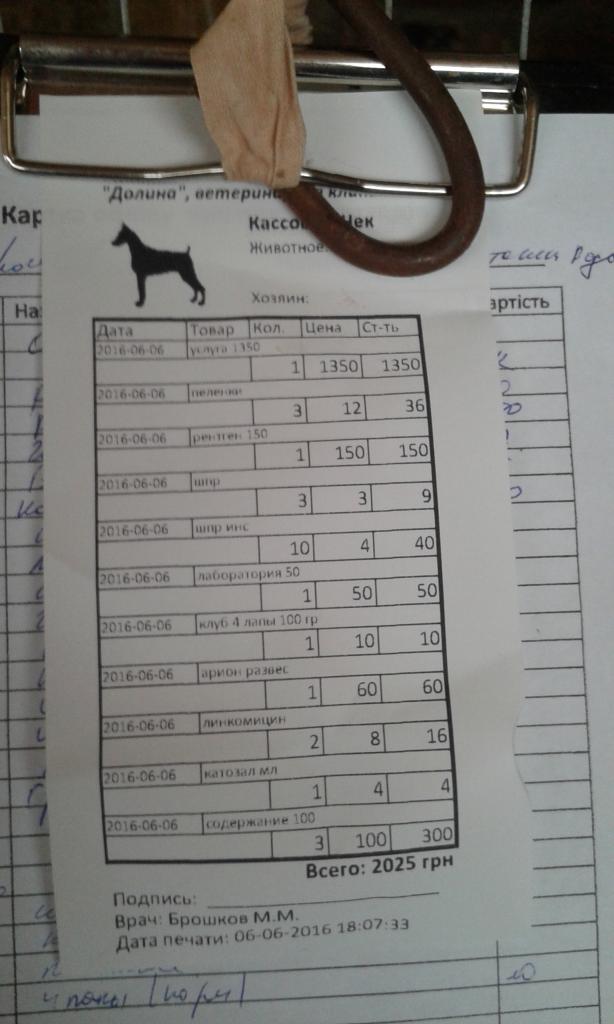 "Долина", ветеринарная клин
Кар
Кассовый Чек
Животное:
Хозяин:
На
артість
Дата Товар Кол. Цена Ст-ть
2016-06-06 услуга 1350
1 1350 1350
2016-06-06 пеленки
3 12 36
2016-06-06 рентген 150
1 150 150
2016-06-06 шпр
3 3 9
2016-06-06 шпр инс
10 4 40
2016-06-06 лаборатория 50
1 50 50
2016-06-06 клуб 4 лапы 100 гр
1 10 10
2016-06-06 арион развес
1 60 60
2016-06-06 линкомицин
2 8 16
2016-06-06 катозал мл
1 4 4
2016-06-06 содержание 100
3 100 300
Всего: 2025 грн
Подпись:
Врач: Брошков М.М.
Дата печати: 06-06-2016 18:07:33